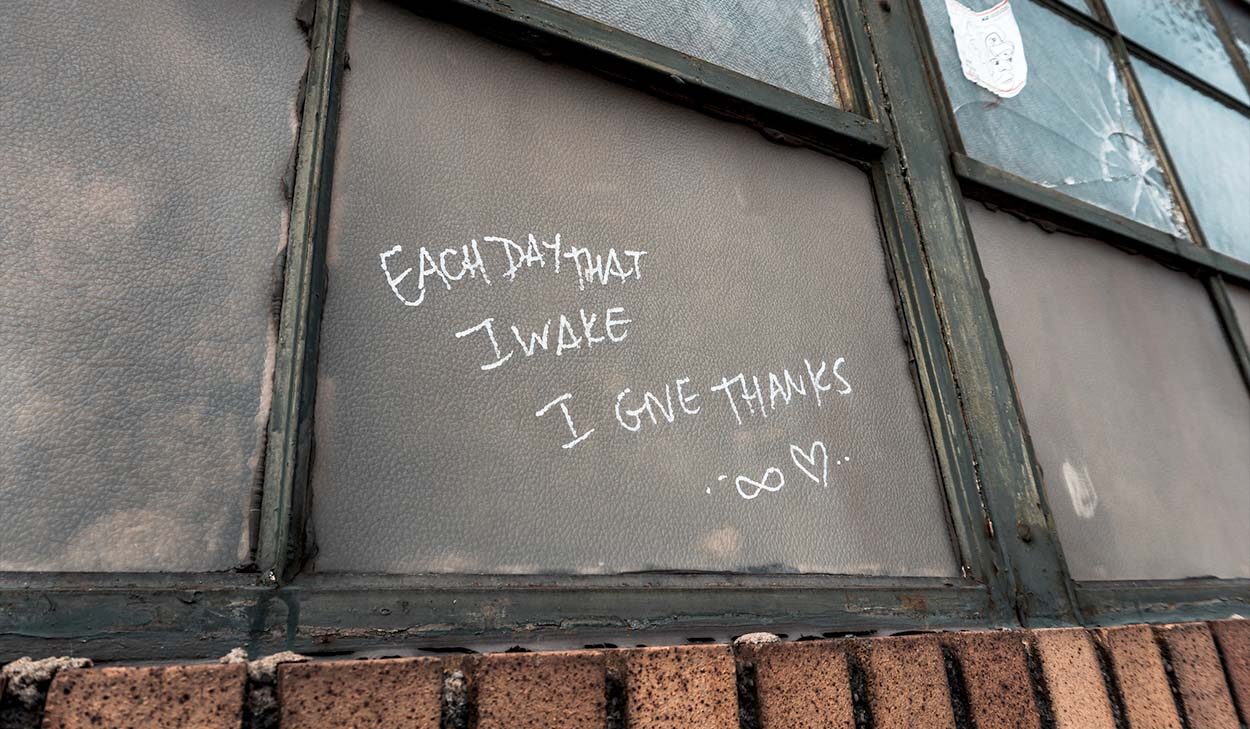 EACH DAY THAT
I WAKE
I GIVE THANKS
∞ ♡